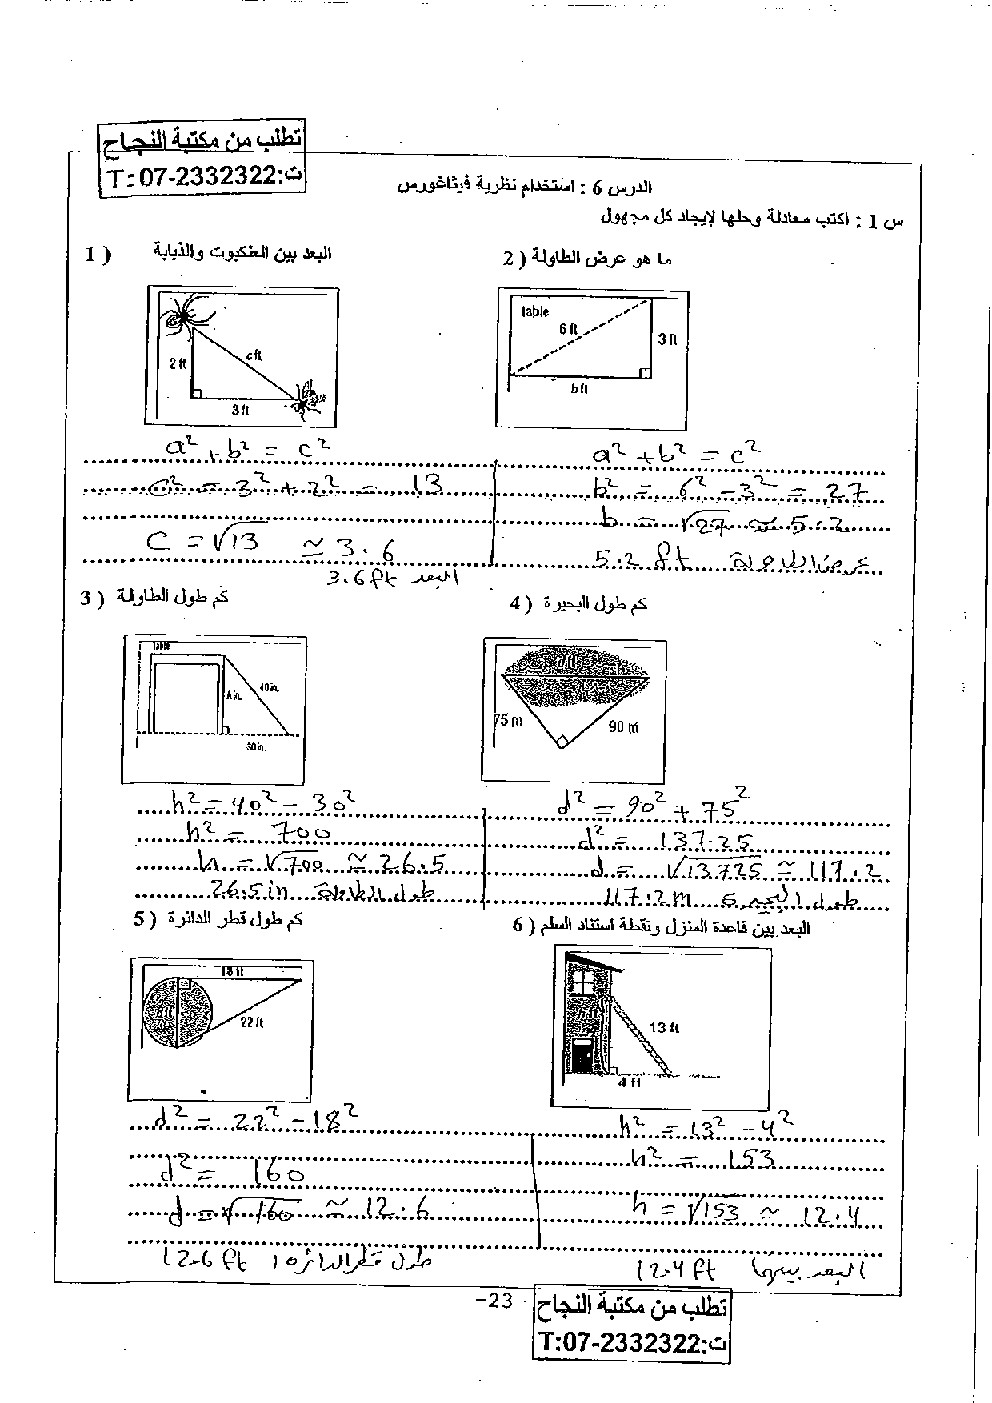 تطلب من مكتبة النجاح
ت:T: 07-2332322
الدرس 6 : استخدام نظرية فيثاغورس
س 1 : اكتب معادلة وحلها لإيجاد كل مجهول
1 ) البعد بين العنكبوت والذبابة
2 ft
c ft
3 ft
a² + b² = c²
c² = 3² + 2² = 13
C = √13 ≈ 3.6
البعد 3.6 ft
2 ) ما هو عرض الطاولة
table
6 ft
3 ft
b ft
a² + b² = c²
b² = 6² - 3² = 27
b = √27 ≈ 5.2
عرض الطاولة 5.2 ft
3 ) كم طول الطاولة
table
h in.
40 in.
30 in.
h² = 40² - 30²
h² = 700
h = √700 ≈ 26.5
طول الطاولة 26.5 in
4 ) كم طول البحيرة
75 m
90 m
d² = 90² + 75²
d² = 137.25
d = √13725 ≈ 117.2
طول البحيرة 117.2 m
5 ) كم طول قطر الدائرة
18 ft
22 ft
d² = 22² - 18²
d² = 160
d = √160 ≈ 12.6
طول قطر الدائرة 12.6 ft
6 ) البعد بين قاعدة المنزل ونقطة استناد السلم
13 ft
4 ft
h² = 13² - 4²
h² = 153
h = √153 ≈ 12.4
البعد بينهما 12.4 ft
-23
تطلب من مكتبة النجاح
ت:T:07-2332322